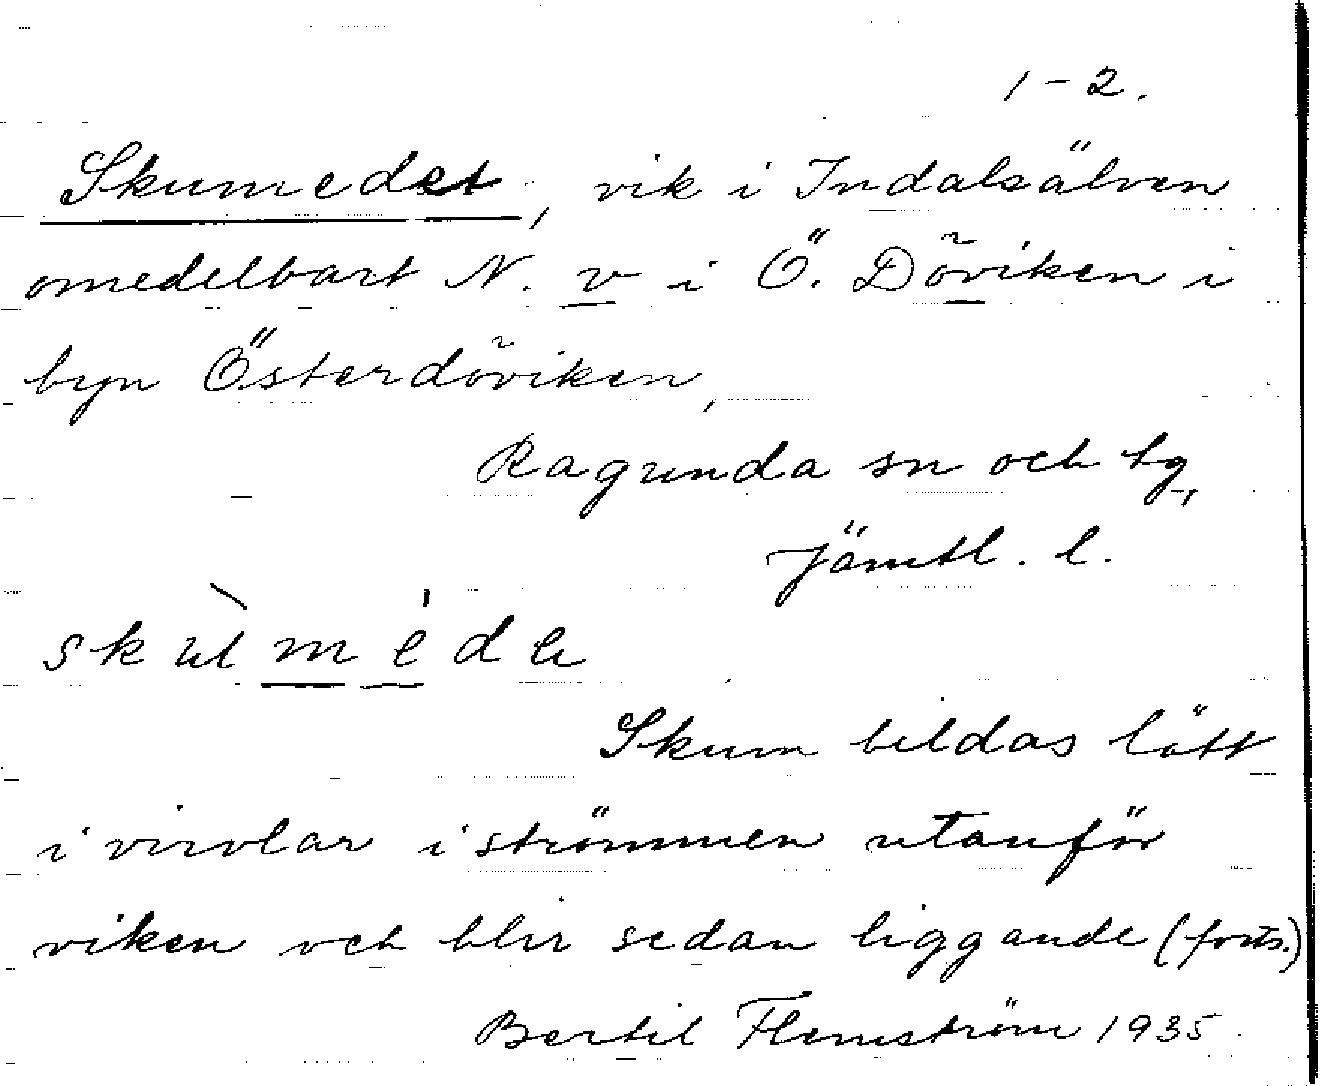 1-2.
Skumedet, vik i Indalsälven
omedelbart N. v i Ö. Döviken i
byn Österdöviken,
Ragunda sn och tg,
Jämtl. l.
skùméda
Skum bildas lätt
i virvlar i strömmen utanför
viken och blir sedan liggande (forts.)
Bertil Flemström 1935